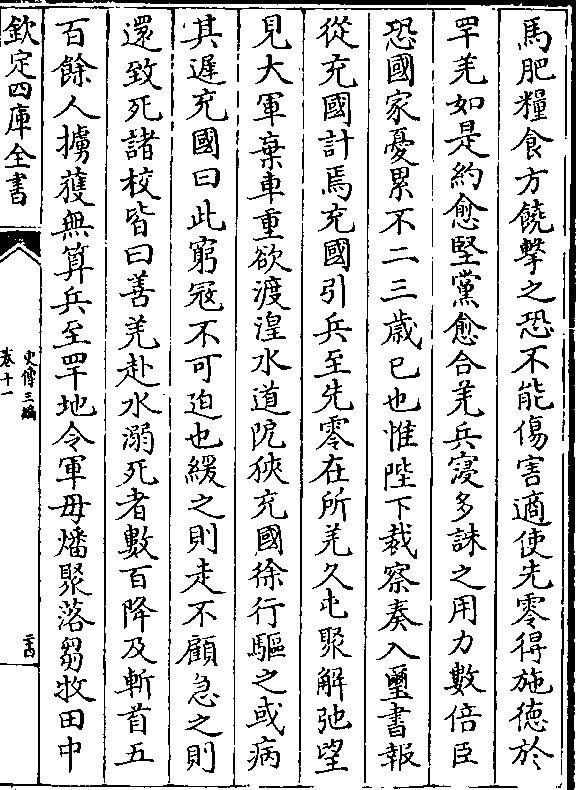 馬肥糧食方饒擊之恐不能傷害適使先零得施德於
罕羌如是約愈堅黨愈合羌兵寖多誅之用力數倍臣
恐國家憂累不二三歲已也惟陛下裁察奏入璽書報
從充國計焉充國引兵至先零在所羌久屯聚解弛望
見大軍棄車重欲渡湟水道阨狹充國徐行驅之或病
其遲充國曰此窮寇不可迫也緩之則走不顧急之則
還致死諸校皆曰善羌赴水溺死者數百降及斬首五
百餘人擄獲無算兵至罕地令軍毋燔聚落芻牧田中
欽定四庫全書
史傳三編
卷十一
二十四